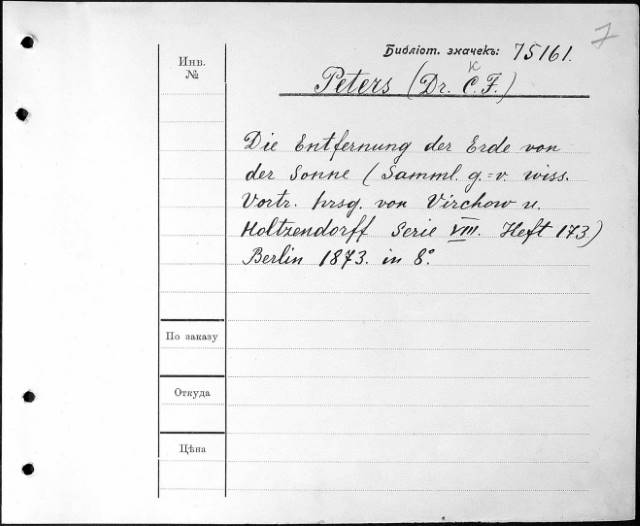 7
Библіот. значекъ: 75161.
Инв.
№
K
Peters (Dr. C. F.)
Die Entfernung der Erde von
der Sonne (Samml. g.=v. wiss.
Vortr. hrsg. von Virchow u.
Holtzendorff Serie VIII. Heft 173)
Berlin 1873. in 8°.
По заказу
Откуда
Цѣна